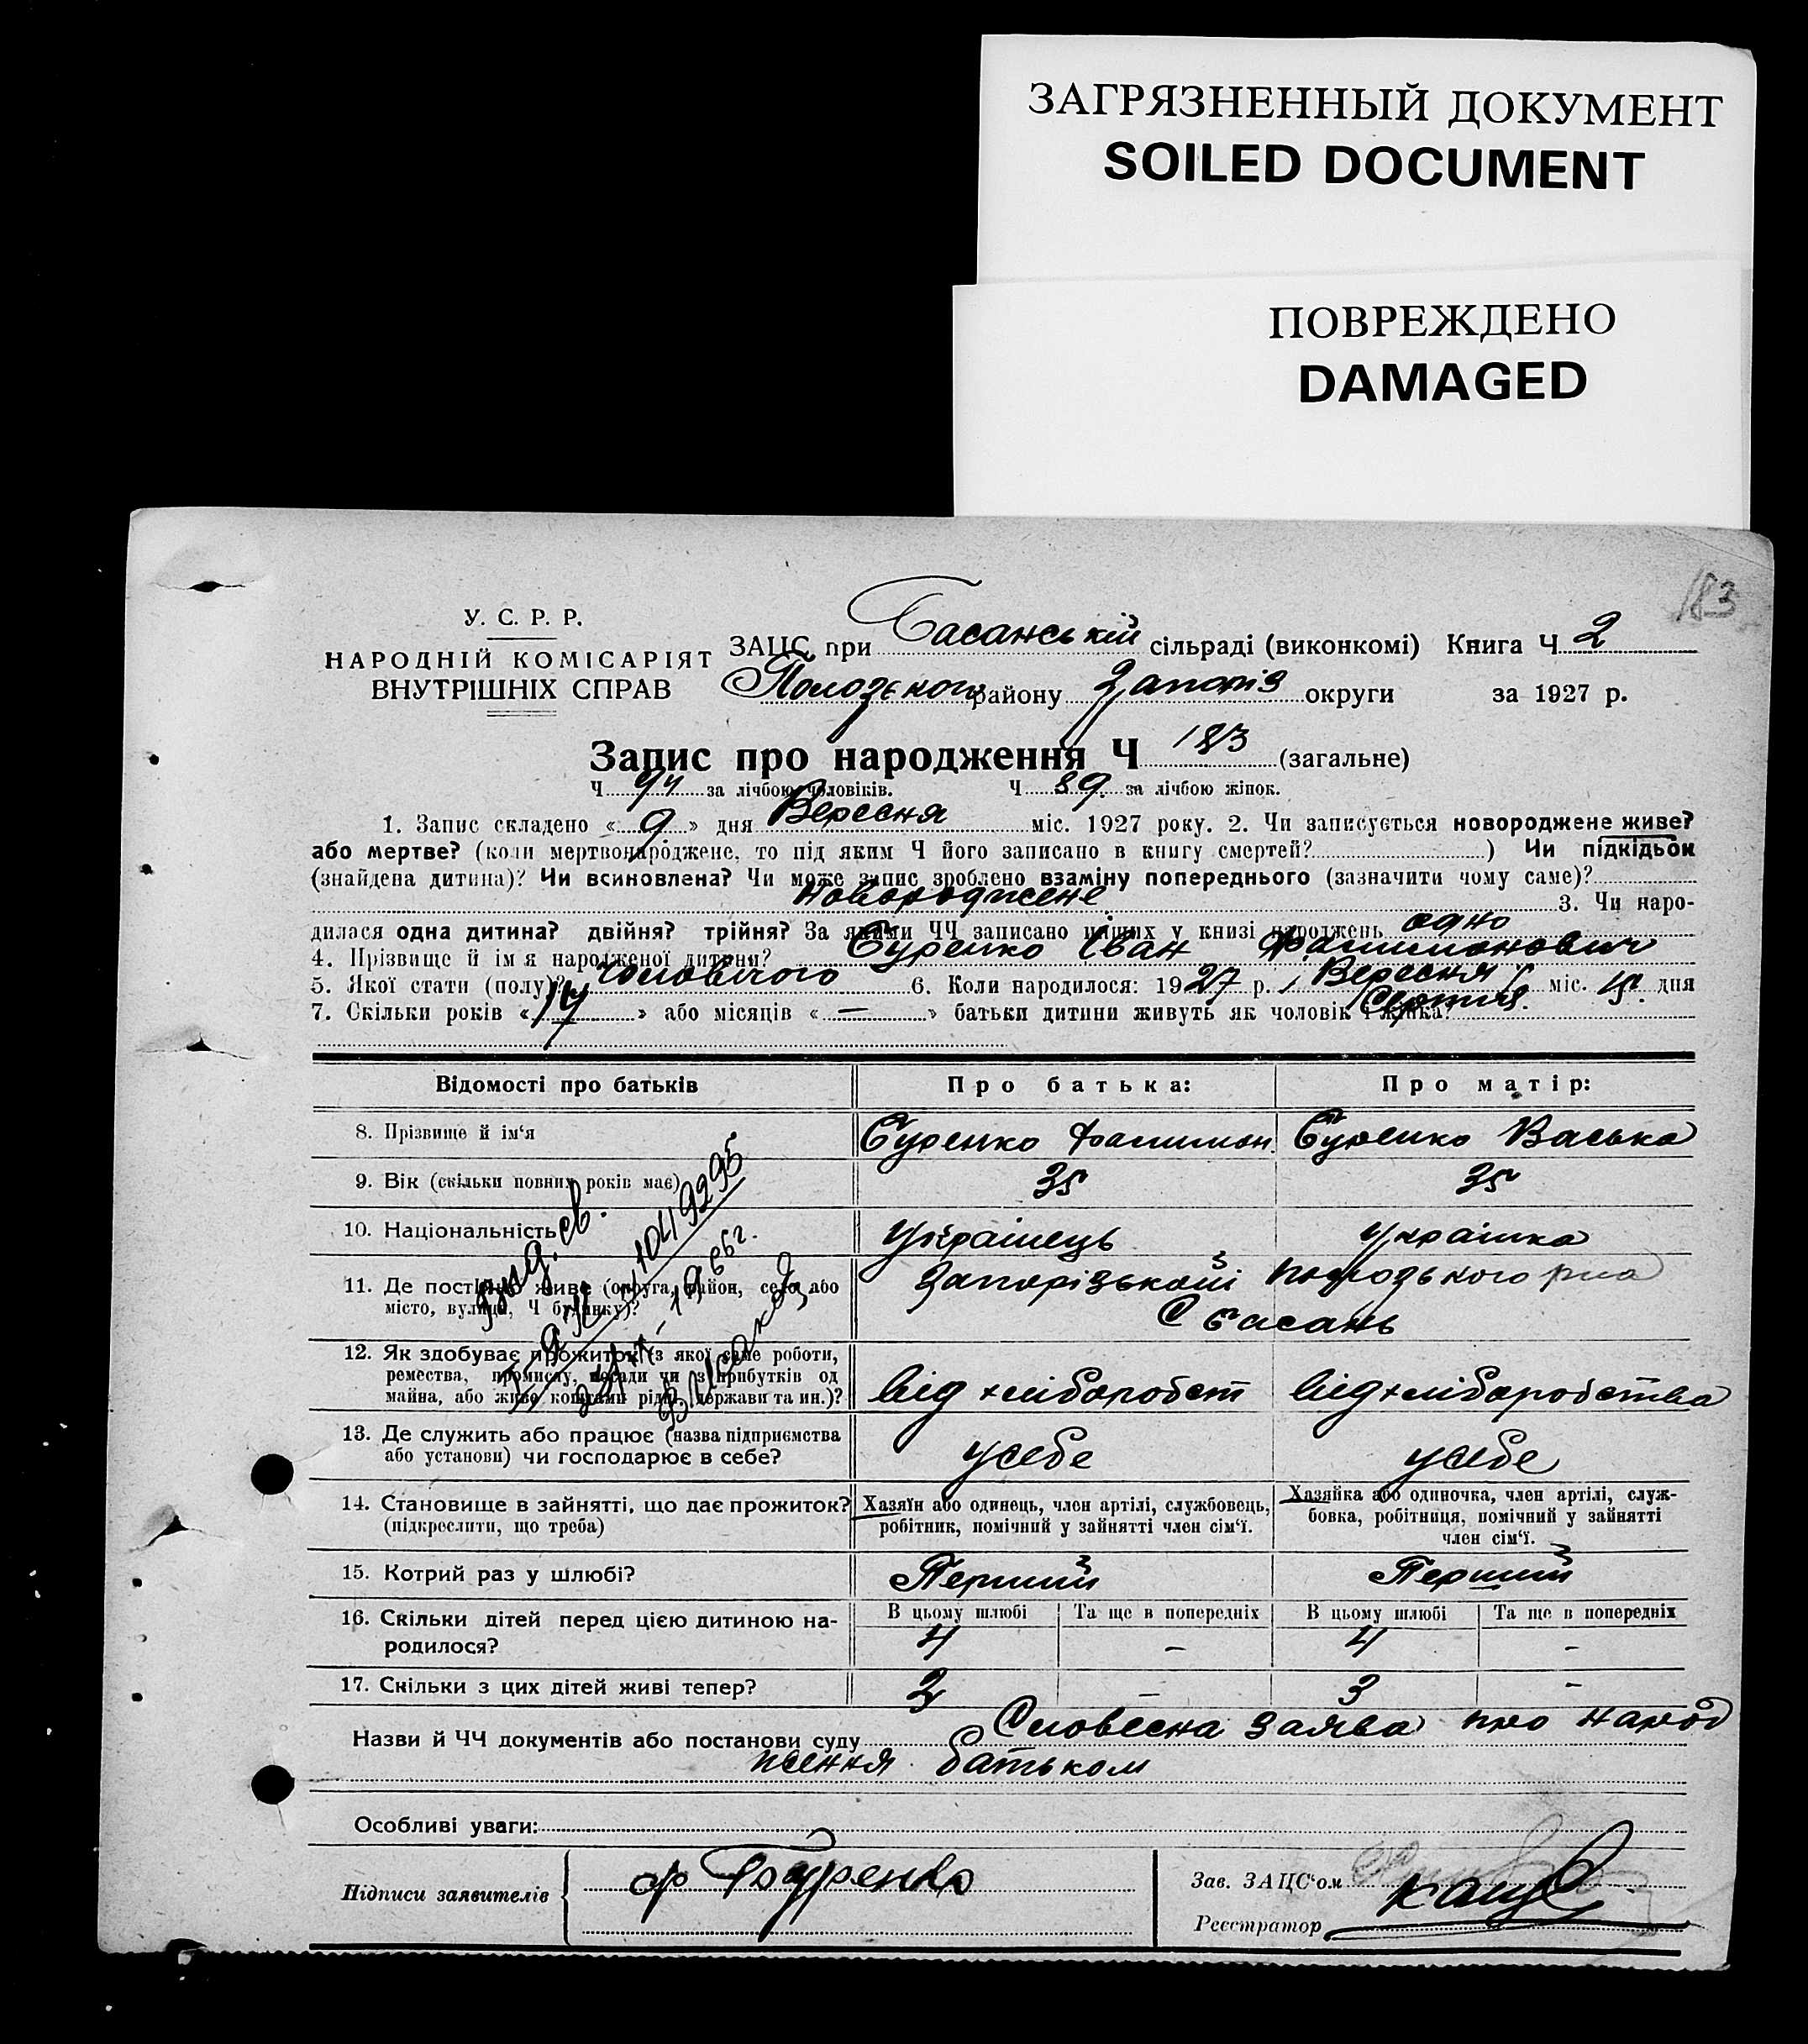 ЗАГРЯЗНЕННЫЙ ДОКУМЕНТ
SOILED DOCUMENT
ПОВРЕЖДЕНО
DAMAGED
183
У. С. Р. Р.
НАРОДНІЙ КОМІСАРІЯТ
ВНУТРІШНІХ СПРАВ
ЗАЦС при Басанській сільраді (виконкомі) Книга Ч 2
Пологського району Запоріз округи за 1927 р.
Запис про народження Ч 183 (загальне)
Ч 94 за лічбою чоловіків. Ч 89. за лічбою жінок.
1. Запис складено « 9 » дня Вересня міс. 1927 року. 2. Чи записується новороджене живе?
або мертве? (коли мертвонароджене, то під яким Ч його записано в книгу смертей? ) Чи підкідьок
(знайдена дитина)? Чи всиновлена? Чи може запис зроблено взаміну попереднього (зазначити чому саме)?
новороджене 3. Чи наро-
дилася одна дитина? двійня? трійня? За якими ЧЧ записано інших у книзі народжень одно
4. Прізвище й ім'я народженої дитини? Буренко Іван Фалимонович
5. Якої стати (полу)? чоловічого 6. Коли народилося: 1927 р. Вересня міс. 15 дня
Серпня.
7. Скільки років « 14 » або місяців « — » батьки дитини живуть як чоловік і жінка?
Відомості про батьків Про батька: Про матір:
8. Прізвище й ім'я Буренко Фалимон. Буренко Васька
9. Вік (скільки повних років має) 35 35
10. Національність Українець Українка
11. Де постійно живе (округа, район, село або місто, вулиця, Ч будинку)? Запорізькоі Пологського р-на
С Басань
12. Як здобуває прожиток (з якої саме роботи,
ремества, промислу, посади чи з прибутків од
майна, або живе коштами рідні, держави та ин.)? від хліборобст від хліборобства
13. Де служить або працює (назва підприємства
або установи) чи господарює в себе? усебе усебе
14. Становище в зайнятті, що дає прожиток?
(підкреслити, що треба)
Хазяїн або одинець, член артілі, службовець,
робітник, помічний у зайнятті член сім'ї.
Хазяйка або одиночка, член артілі, служ-
бовка, робітниця, помічний у зайнятті
член сім'ї.
15. Котрий раз у шлюбі? Перший Перший
16. Скільки дітей перед цією дитиною на-
родилося?
В цьому шлюбі Та ще в попередніх В цьому шлюбі Та ще в попередніх
4 – 4 –
17. Скільки з цих дітей живі тепер? 3 – 3 –
Назви й ЧЧ документів або постанови суду Словесна заява про народ
ження батьком
Особливі уваги:
Підписи заявителів ф Буренко
Зав. ЗАЦС'ом
Реєстратор